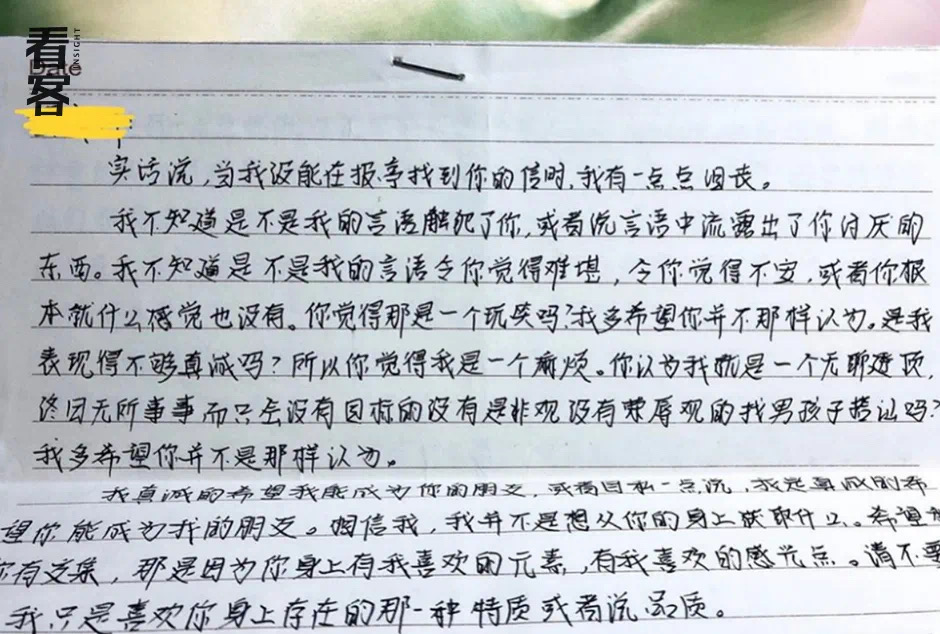 看客
INSIGHT
Date
实话说，当我没能在报亭找到你的信时，我有一点点沮丧。
我不知道是不是我的言语触犯了你，或者说言语中流露出了你讨厌的
东西。我不知道是不是我的言语令你觉得难堪，令你觉得不安，或者你根
本就什么感觉也没有。你觉得那是一个玩笑吗？我多希望你并不那样认为。是我
表现得不够真诚吗？所以你觉得我是一个麻烦。你认为我就是一个无聊透顶，
终日无所事事而只会没有目标的没有是非观没有荣辱观的找男孩子搭讪吗？
我多希望你并不是那样认为。
我真诚的希望我能成为你的朋友，或者自私一点说，我是真诚的希
望你能成为我的朋友。相信我，我并不是想从你的身上获取什么。希望
你有交集，那是因为你身上有我喜欢的元素，有我喜欢的感光点。请不要
我只是喜欢你身上存在的那一种特质或者说品质。